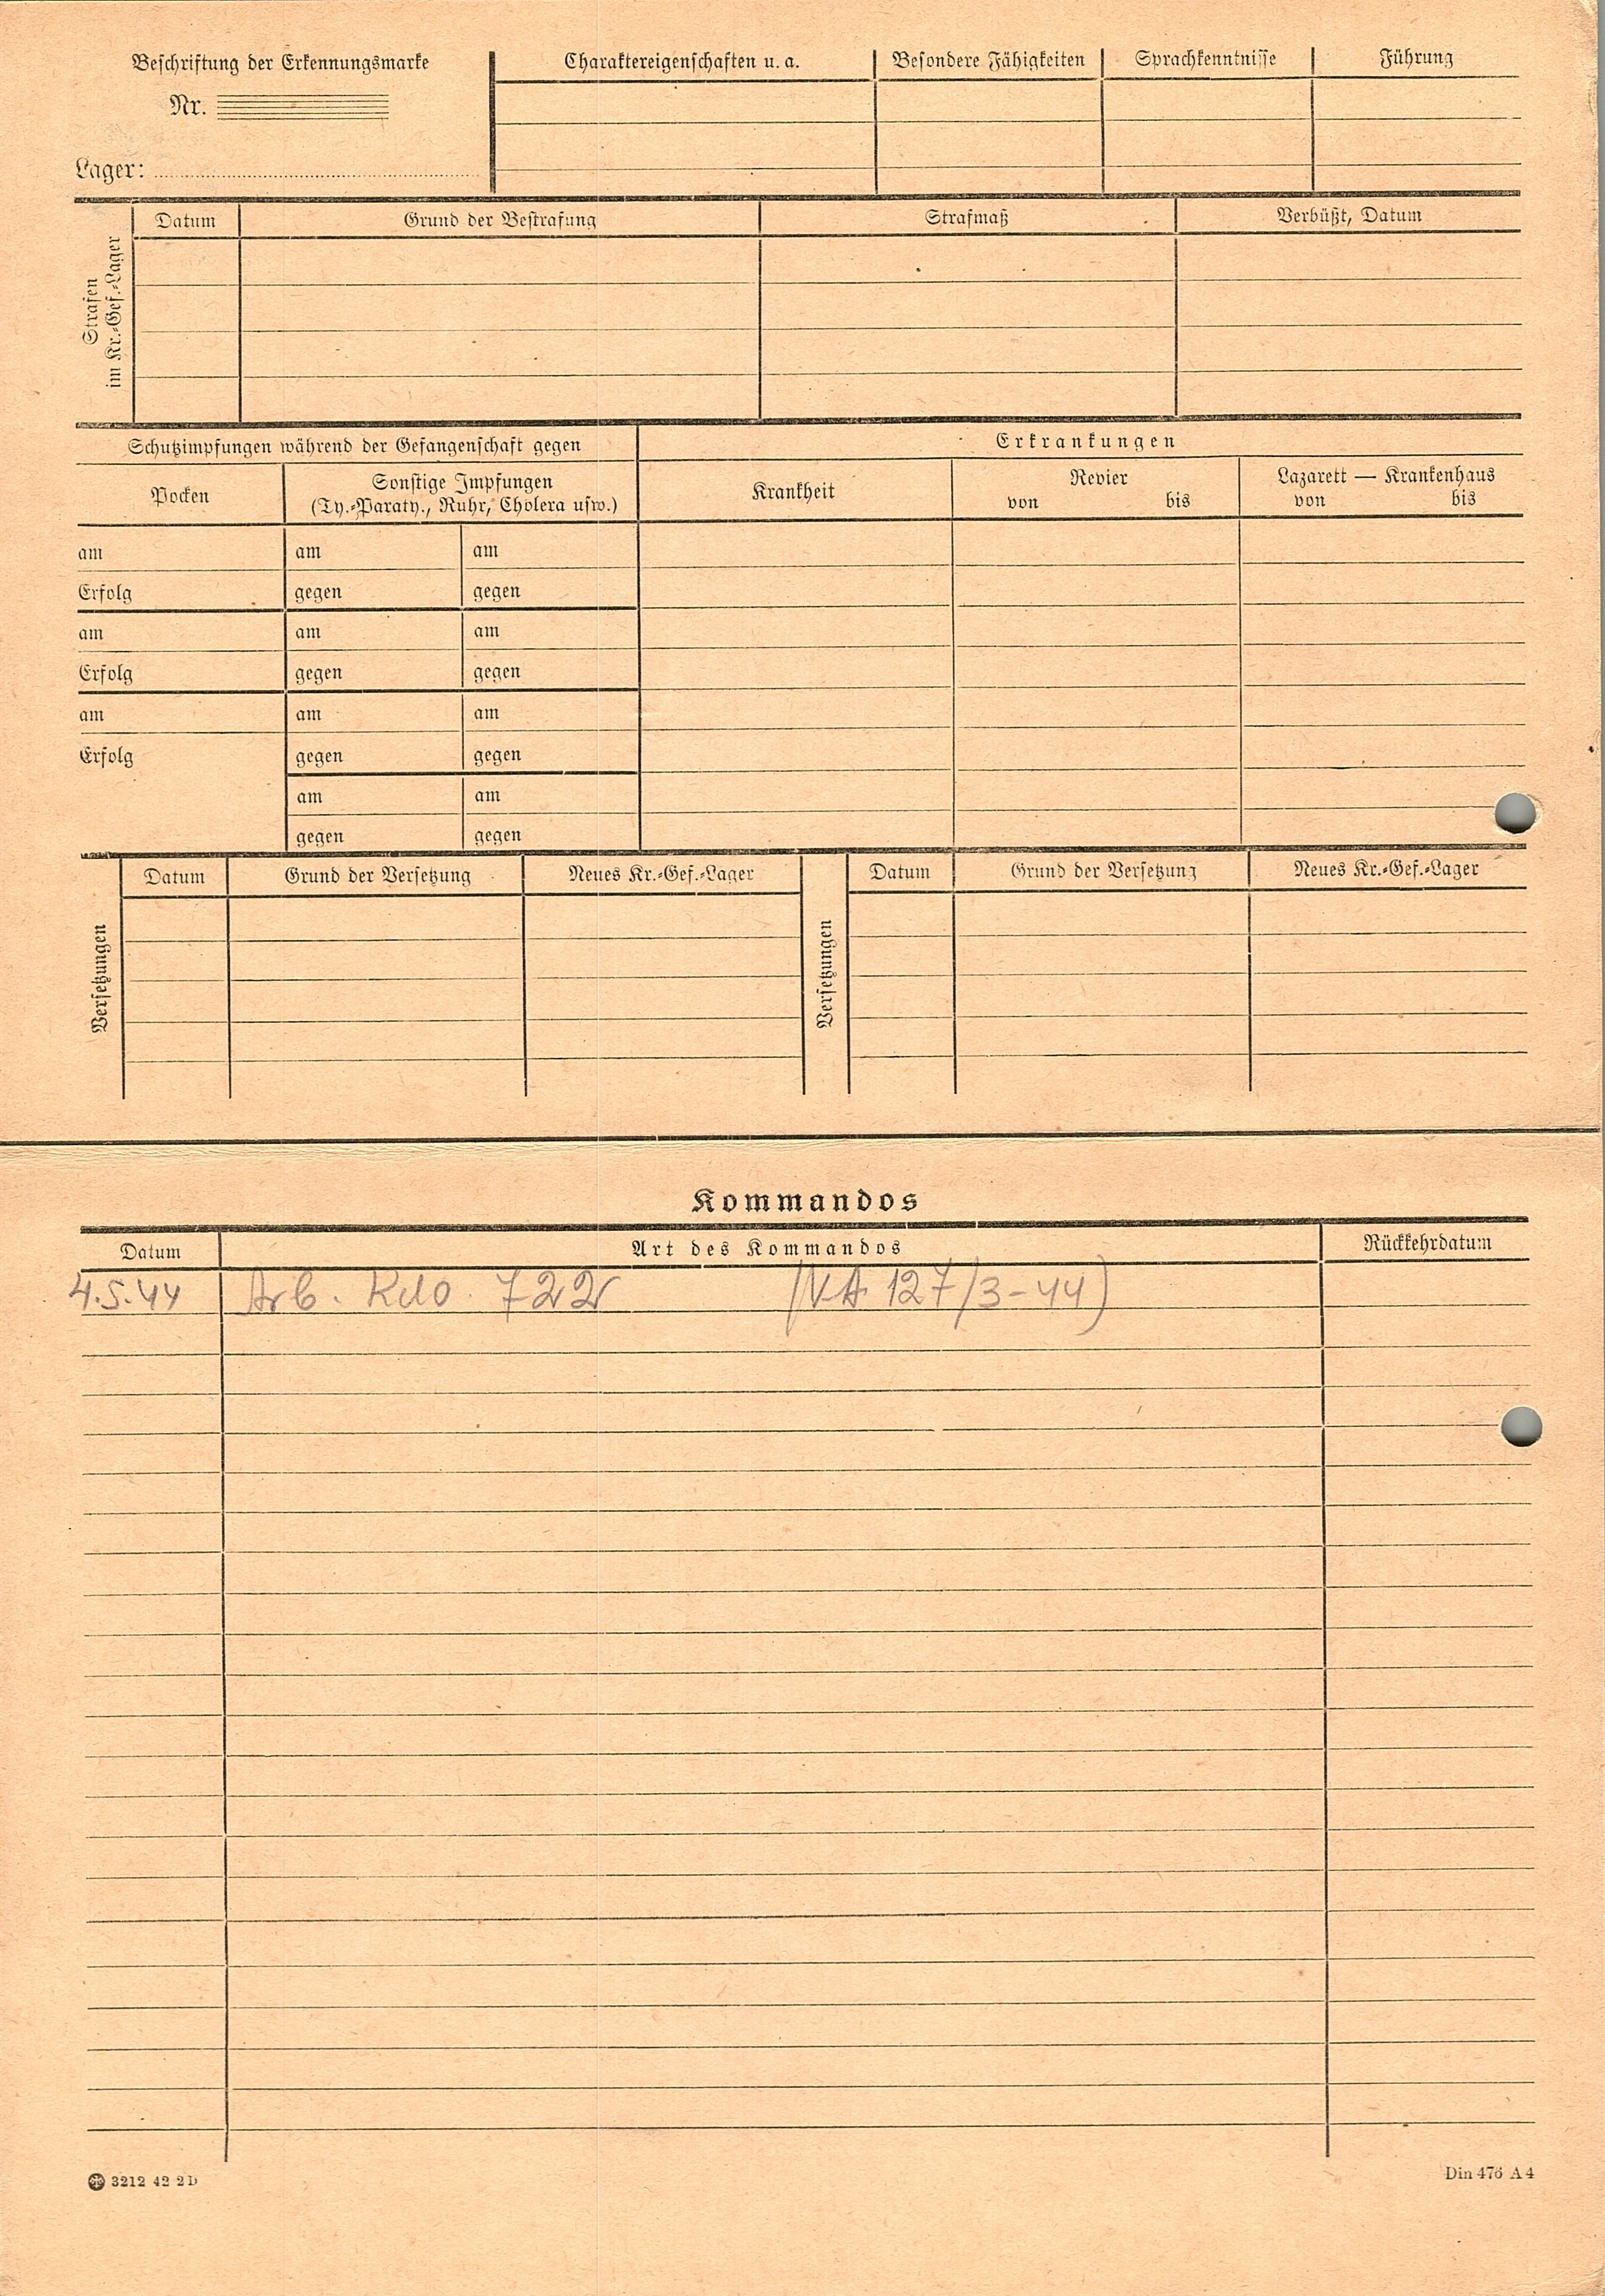 Beschriftung der Erkennungsmarke
Nr.
Lager:
Charaktereigenschaften u. a. Besondere Fähigkeiten Sprachkenntnisse Führung
Strafen
im Kr.-Gef.-Lager
Datum Grund der Bestrafung Strafmaß Verbüßt, Datum
Schutzimpfungen während der Gefangenschaft gegen
Pocken
Sonstige Impfungen
(Ty.-Paraty., Ruhr, Cholera usw.)
Erkrankungen
Krankheit
Revier
von bis
Lazarett — Krankenhaus
von bis
am am am
Erfolg gegen gegen
am am am
Erfolg gegen gegen
am am am
Erfolg gegen gegen
am am
gegen gegen
Versetzungen
Datum Grund der Versetzung Neues Kr.-Gef.-Lager
Versetzungen
Datum Grund der Versetzung Neues Kr.-Gef.-Lager
Kommandos
Datum Art des Kommandos Rückkehrdatum
4.5.44 Arb. Kdo. 722 (VA 127/3-44)
3212 42 2D
Din 476 A4